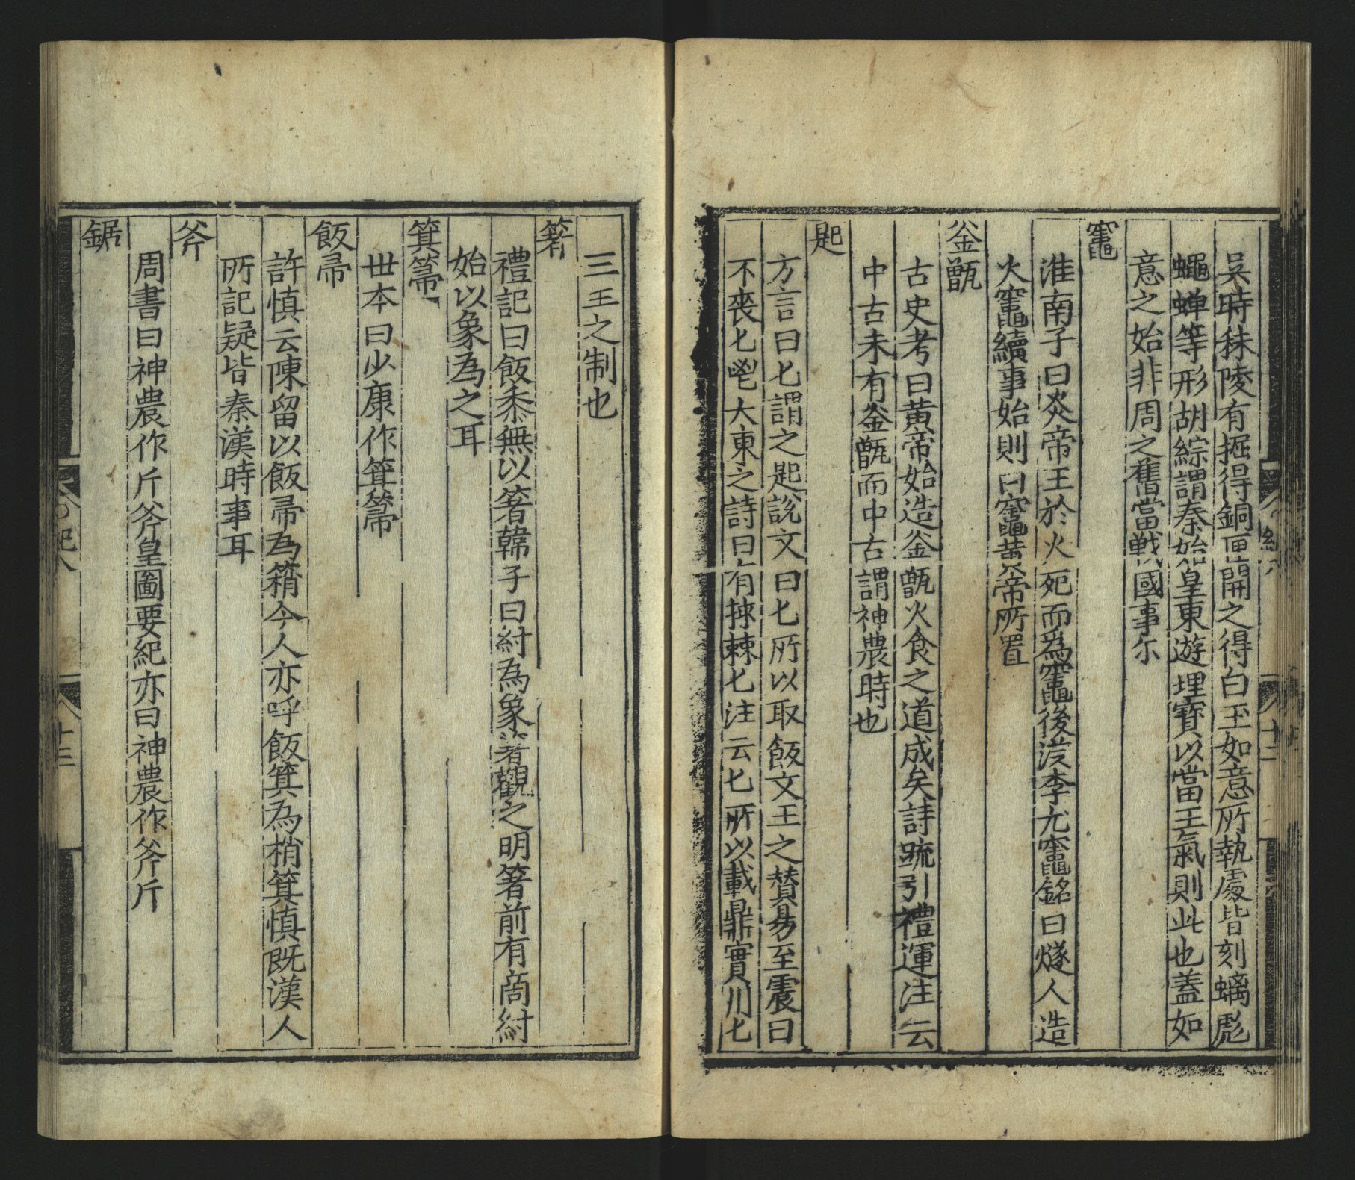 吳時秣陵有掘得銅匣開之得白玉如意所執處皆刻螭彪
蠅蟬等形胡綜謂秦始皇東遊埋寶以當王氣則此也蓋如
意之始非周之舊當戰國事尓
竈
淮南子曰炎帝王於火死而為竈後漢李尤竈銘曰燧人造
火竈續事始則曰竈黄帝所置
釜甑
古史考曰黄帝始造釜甑火食之道成矣詩疏引禮運注云
中古未有釜甑而中古謂神農時也
匙
方言曰匕謂之匙說文曰匕所以取飯文王之賛易至震曰
不喪匕鬯大東之詩曰有捄棘匕注云匕所以載鼎實用匕
三王之制也
箸
禮記曰飯黍無以箸韓子曰紂為象箸觀之明箸前有商紂
始以象為之耳
箕箒
丗本曰少康作箕箒
飯帚
許慎云陳留以飯帚為䈰今人亦呼飯箕為梢箕慎既漢人
所記疑皆秦漢時事耳
斧
周書曰神農作斤斧皇圖要紀亦曰神農作斧斤
鋸
紀八
十三